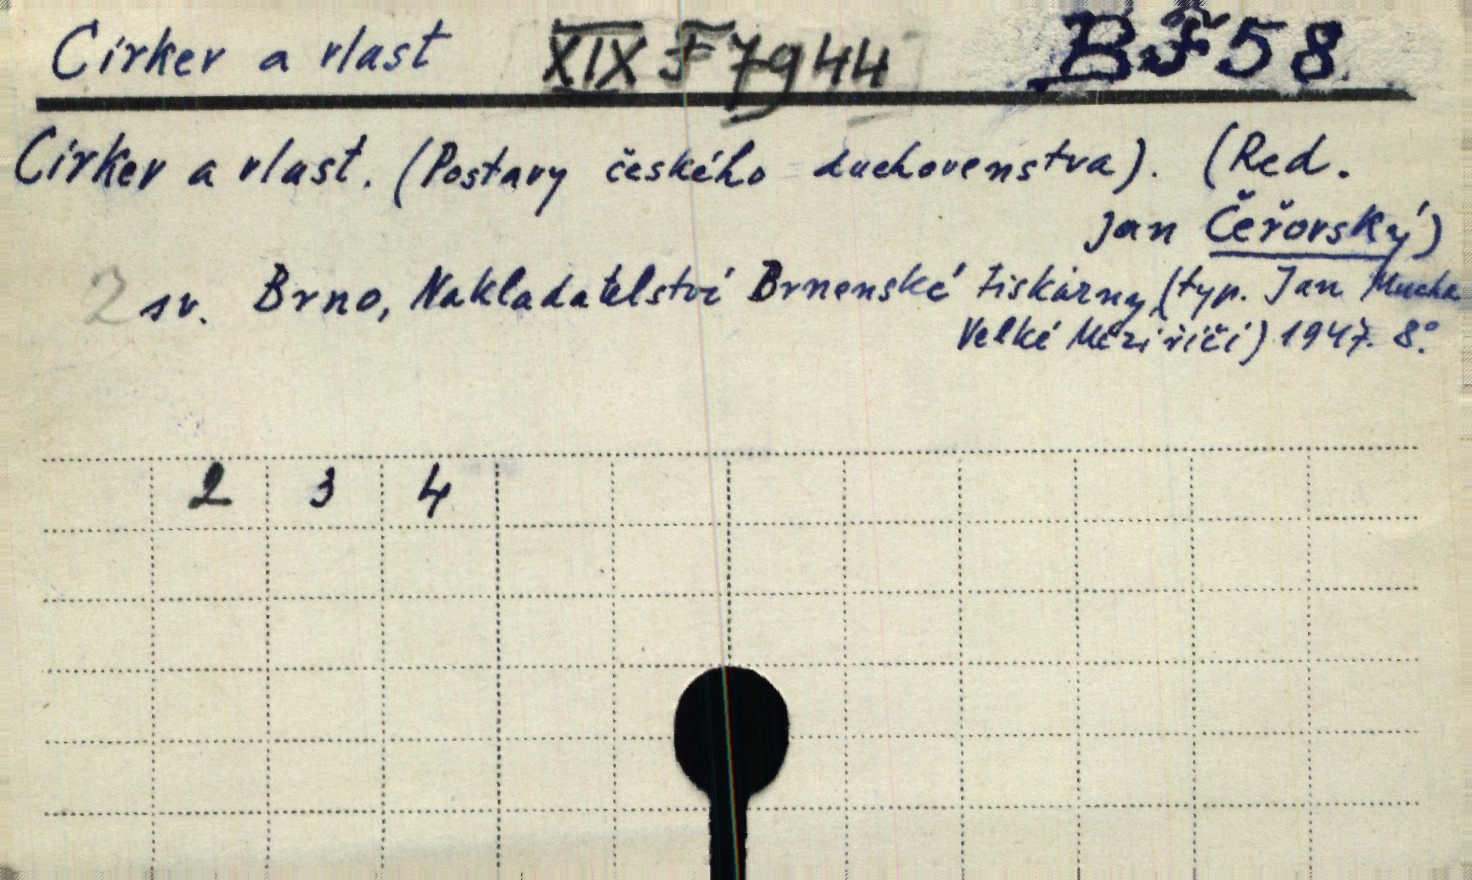 Církev a vlast XIX F 7944 BF 58
Církev a vlast. (Postavy českého duchovenstva). (Red.
Jan Čeřovský)
2 sv. Brno, Nakladatelství Brněnské tiskárny (typ. Jan Mucha
Velké Meziříčí) 1947. 8°.
2 3 4